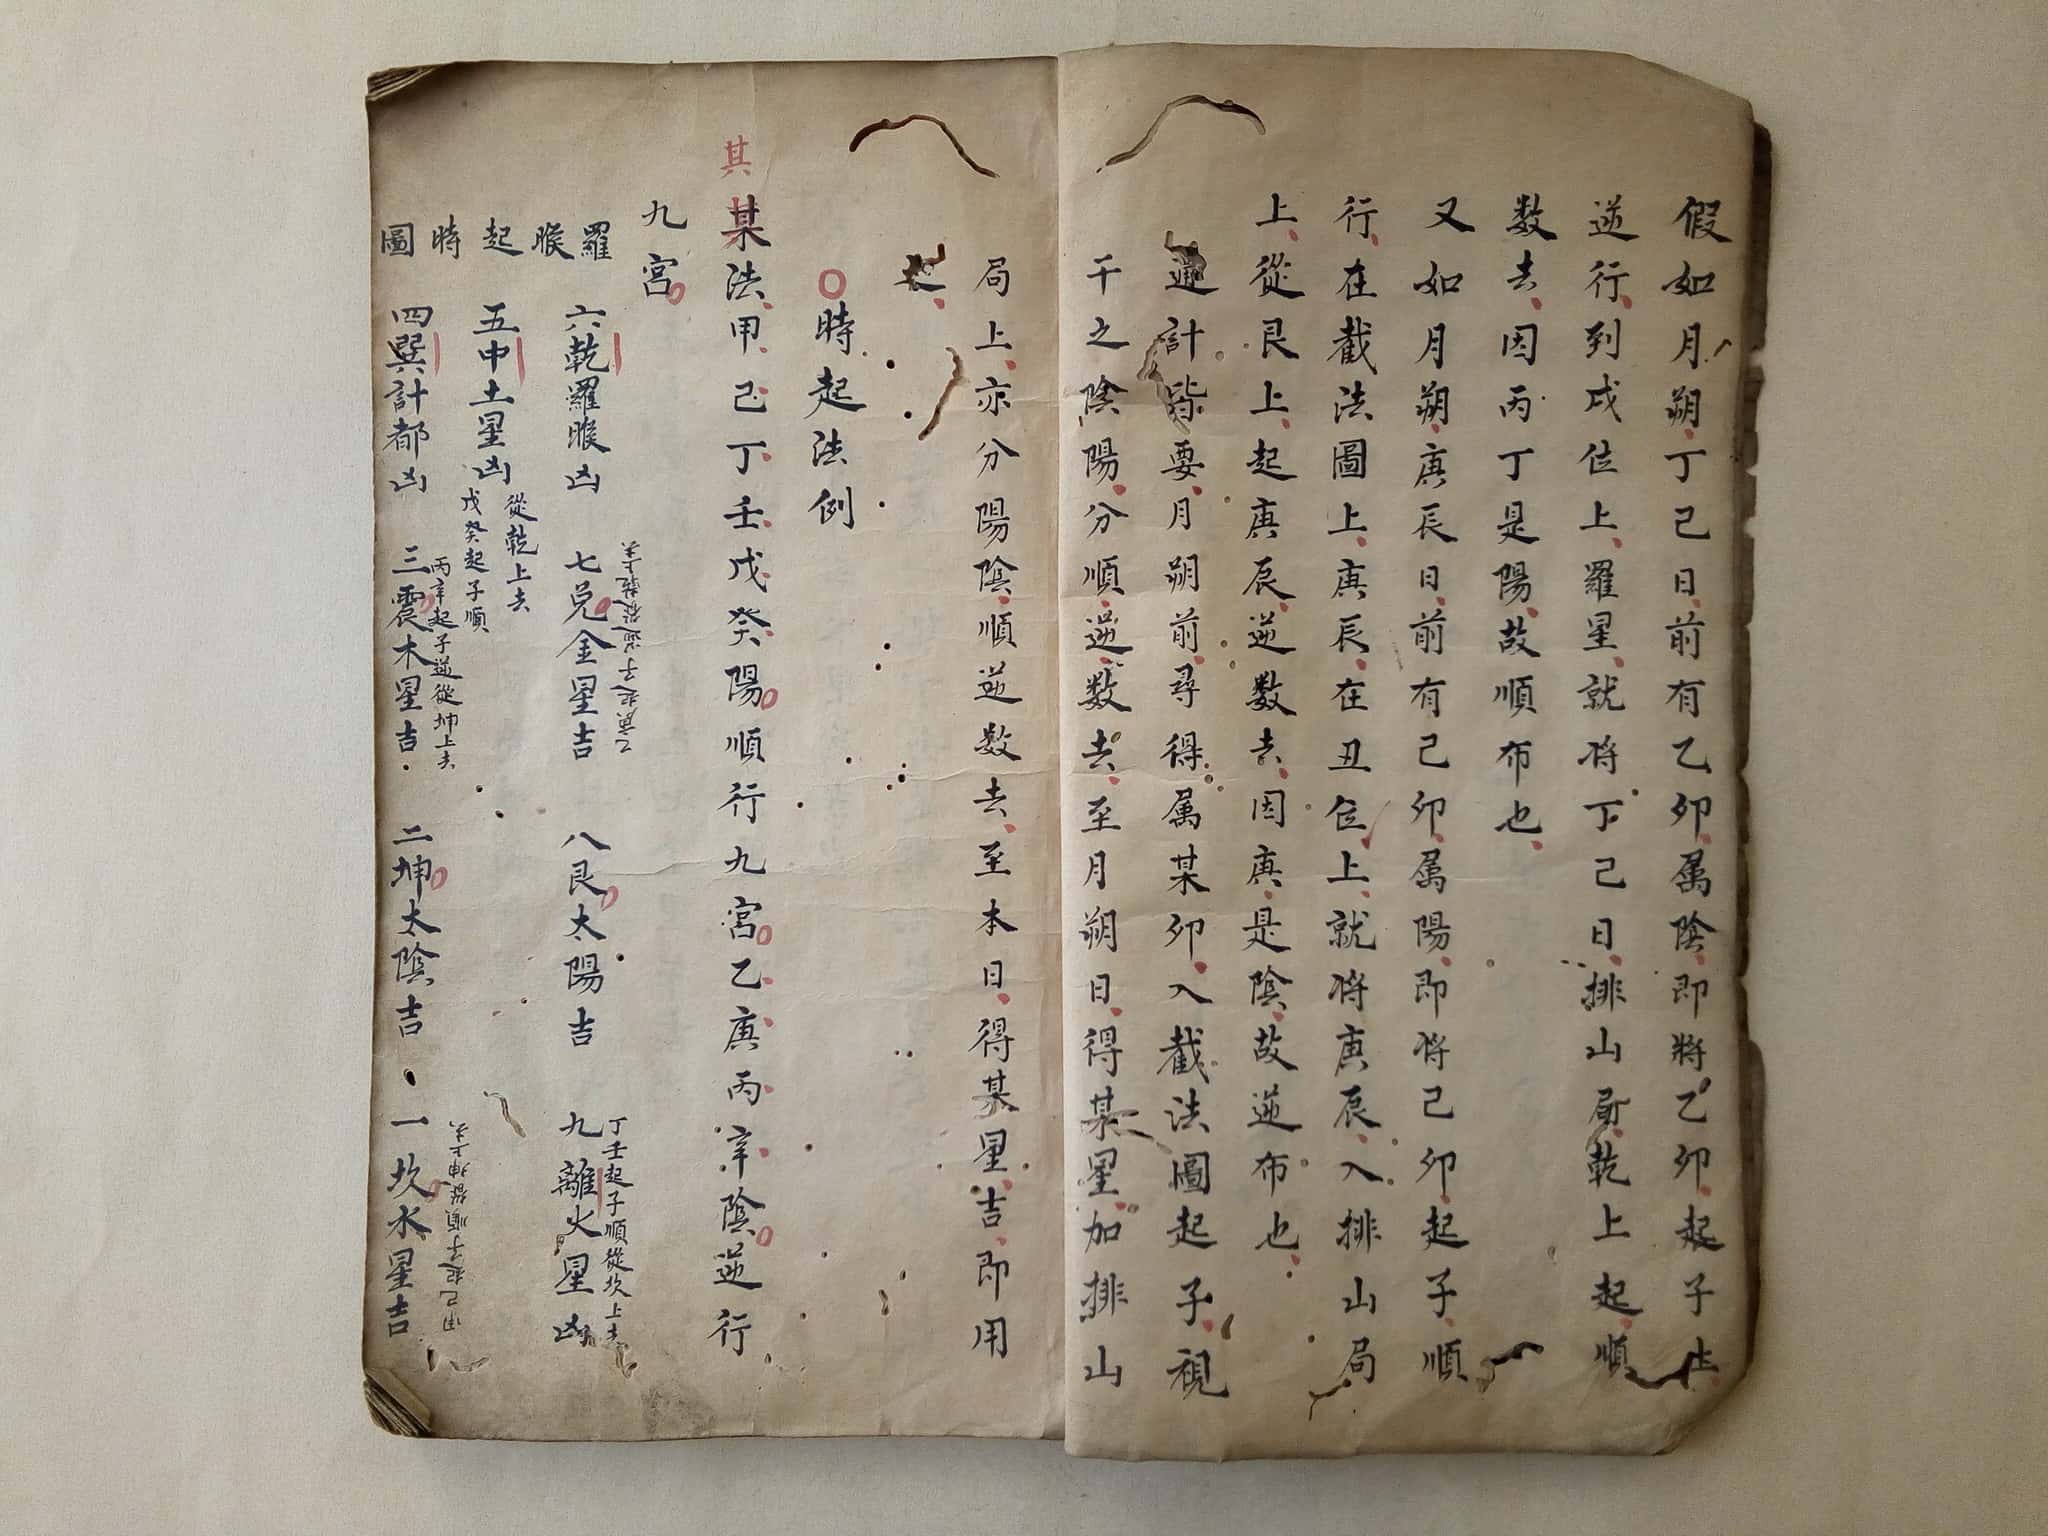 假如月朔丁己日前有乙卯属陰即將乙卯起子上
逆行到戌位上羅星就将丁己日排山局乾上起順
数去因丙丁是陽故順布也
又如月朔庚辰日前有己卯属陽即将己卯起子順
行在截法圖上庚辰在丑位上就将庚辰入排山局
上從艮上起庚辰逆数去因庚是陰故逆布也
通計皆要月朔前尋得属某卯入截法圖起子視
干之陰陽分順逆数去至月朔日得某星加排山
局上亦分陽陰順逆数去至本日得某星吉即用
之
時起法例
其
某法甲己丁壬戊癸陽順行九宮乙庚丙辛陰逆行
九宮
羅睺起時圖
六乾羅睺凶
七兌金星吉
乙庚起子逆從乾上去
八艮太陽吉
九離火星凶
丁壬起子順從坎上去
五中土星凶
從乾上去
戊癸起子順
四巽計都凶
三震木星吉
丙辛起子逆從坤上去
二坤太陰吉
一坎水星吉
甲己起子順從坤上去